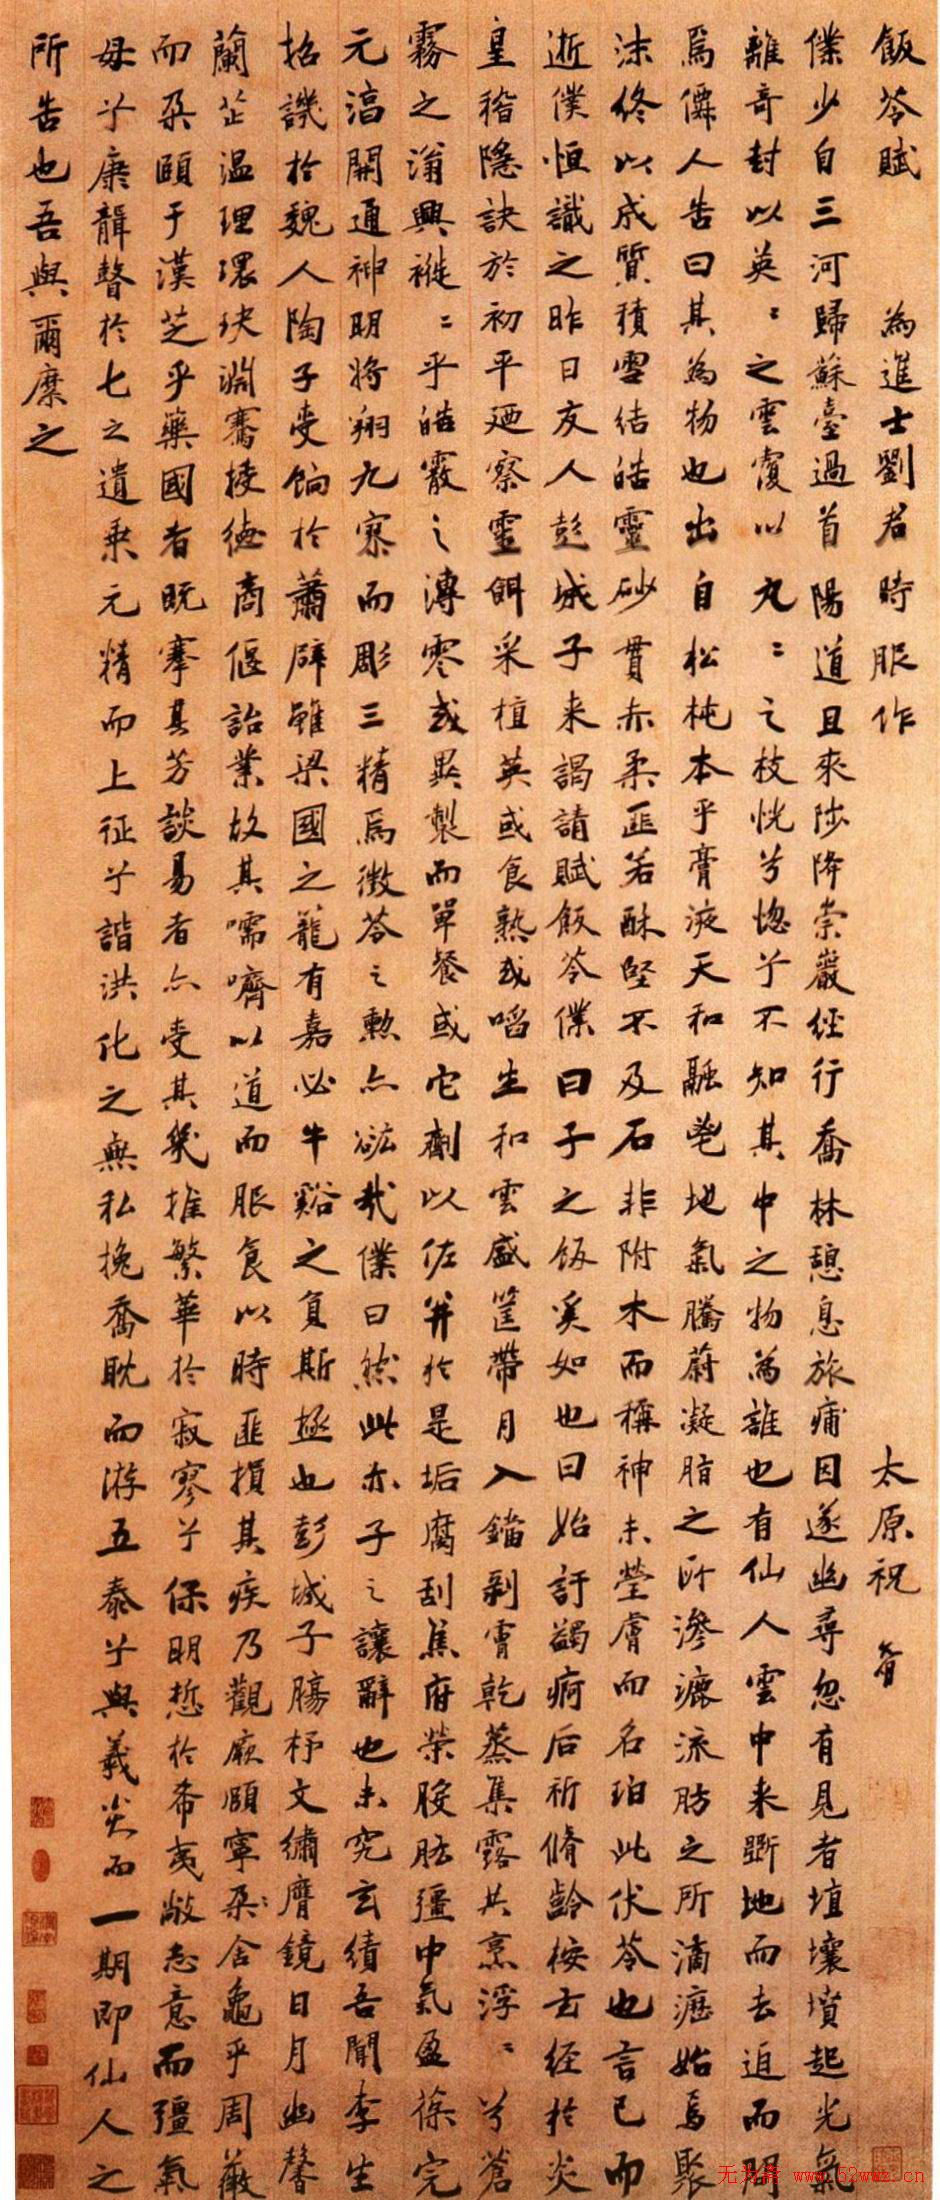 飯苓賦 為進士劉君時服作 太原祝
僕少自三河歸蘇臺過首陽道且來陟降崇巖經行喬林憩息旅痡因遂幽尋忽有見者埴壤墳起光氣
離奇封以英〻之雲覆以丸〻之枝恍兮惚兮不知其中之物為誰也有仙人雲中来斲地而去迫而問
焉儛人告曰其為物也出自松杶本乎膏液天和融鬯地氣騰蔚凝脂之所滲漉流肪之所滴瀝始焉聚
沫終以成質積雪結皓靈砂貫赤柔匪若酥堅不及石非附木而稱神未瑩膚而名珀此伏苓也言已而
逝僕恒識之昨日友人彭城子来謁請賦飯苓僕曰子之飯奚如也曰始訝蠲痾后祈脩齡桉玄經於炎
皇稽隱訣於初平廼察靈餌采植英或食熟或啗生和雲盛筐帶月入鐺剥膚乾蒸集露共烹浮〻兮蒼
霧之滃興褷〻乎皓霰之漙零或異製而單餐或它劑以佐并於是垢腐刮焦府榮胺胠彊中氣盈葆完
元滈開通神明將翔九寮而彫三精焉微苓之勲亦鉱哉僕曰然此亦子之讓辭也未究玄績吾聞李生
招譏於魏人陶子受餉於蕭辟雖梁國之龍有嘉必牛谿之負斯極也彭城子腸杼文繡膺鏡日月幽馨
蘭芷温理環玦淵騫捷德商偃詒業故其嚅嚌以道而服食以時匪損其疾乃觀厥頤寧朶舍龜乎周薇
而朶頤于漢芝乎藥國者既搴其芳談易者亦受其幾推繁華於寂寥兮保明悊於希夷敞志意而彊氣
母兮康韻聱於七之遺乘元精而上征兮諧洪化之無私挽喬眈而游五泰兮與羲炎而一期即仙人之
所告也吾與爾縻之
无为斋 www.52wwz.cn